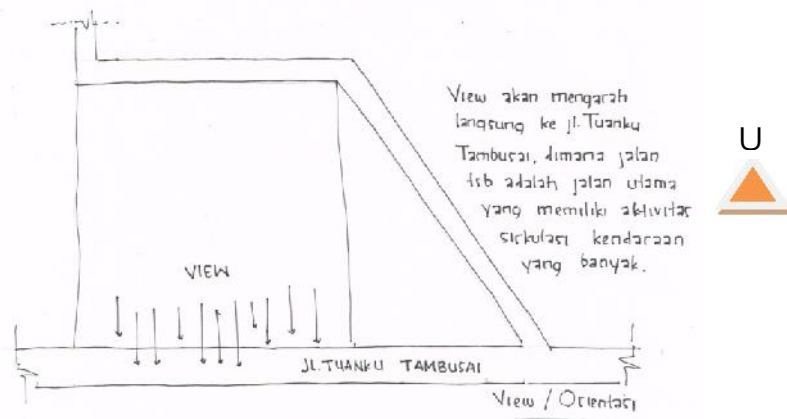 View akan mengarah
langsung ke jl.Tuanku
Tambusai, dimana jalan
tsb adalah jalan utama
yang memiliki aktivitas
sirkulasi kendaraan
yang banyak.
U
VIEW
JL.TUANKU TAMBUSAI
View / Orientasi